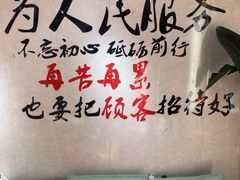 为人民服务
不忘初心 砥砺前行
再苦再累
也要把顾客招待好